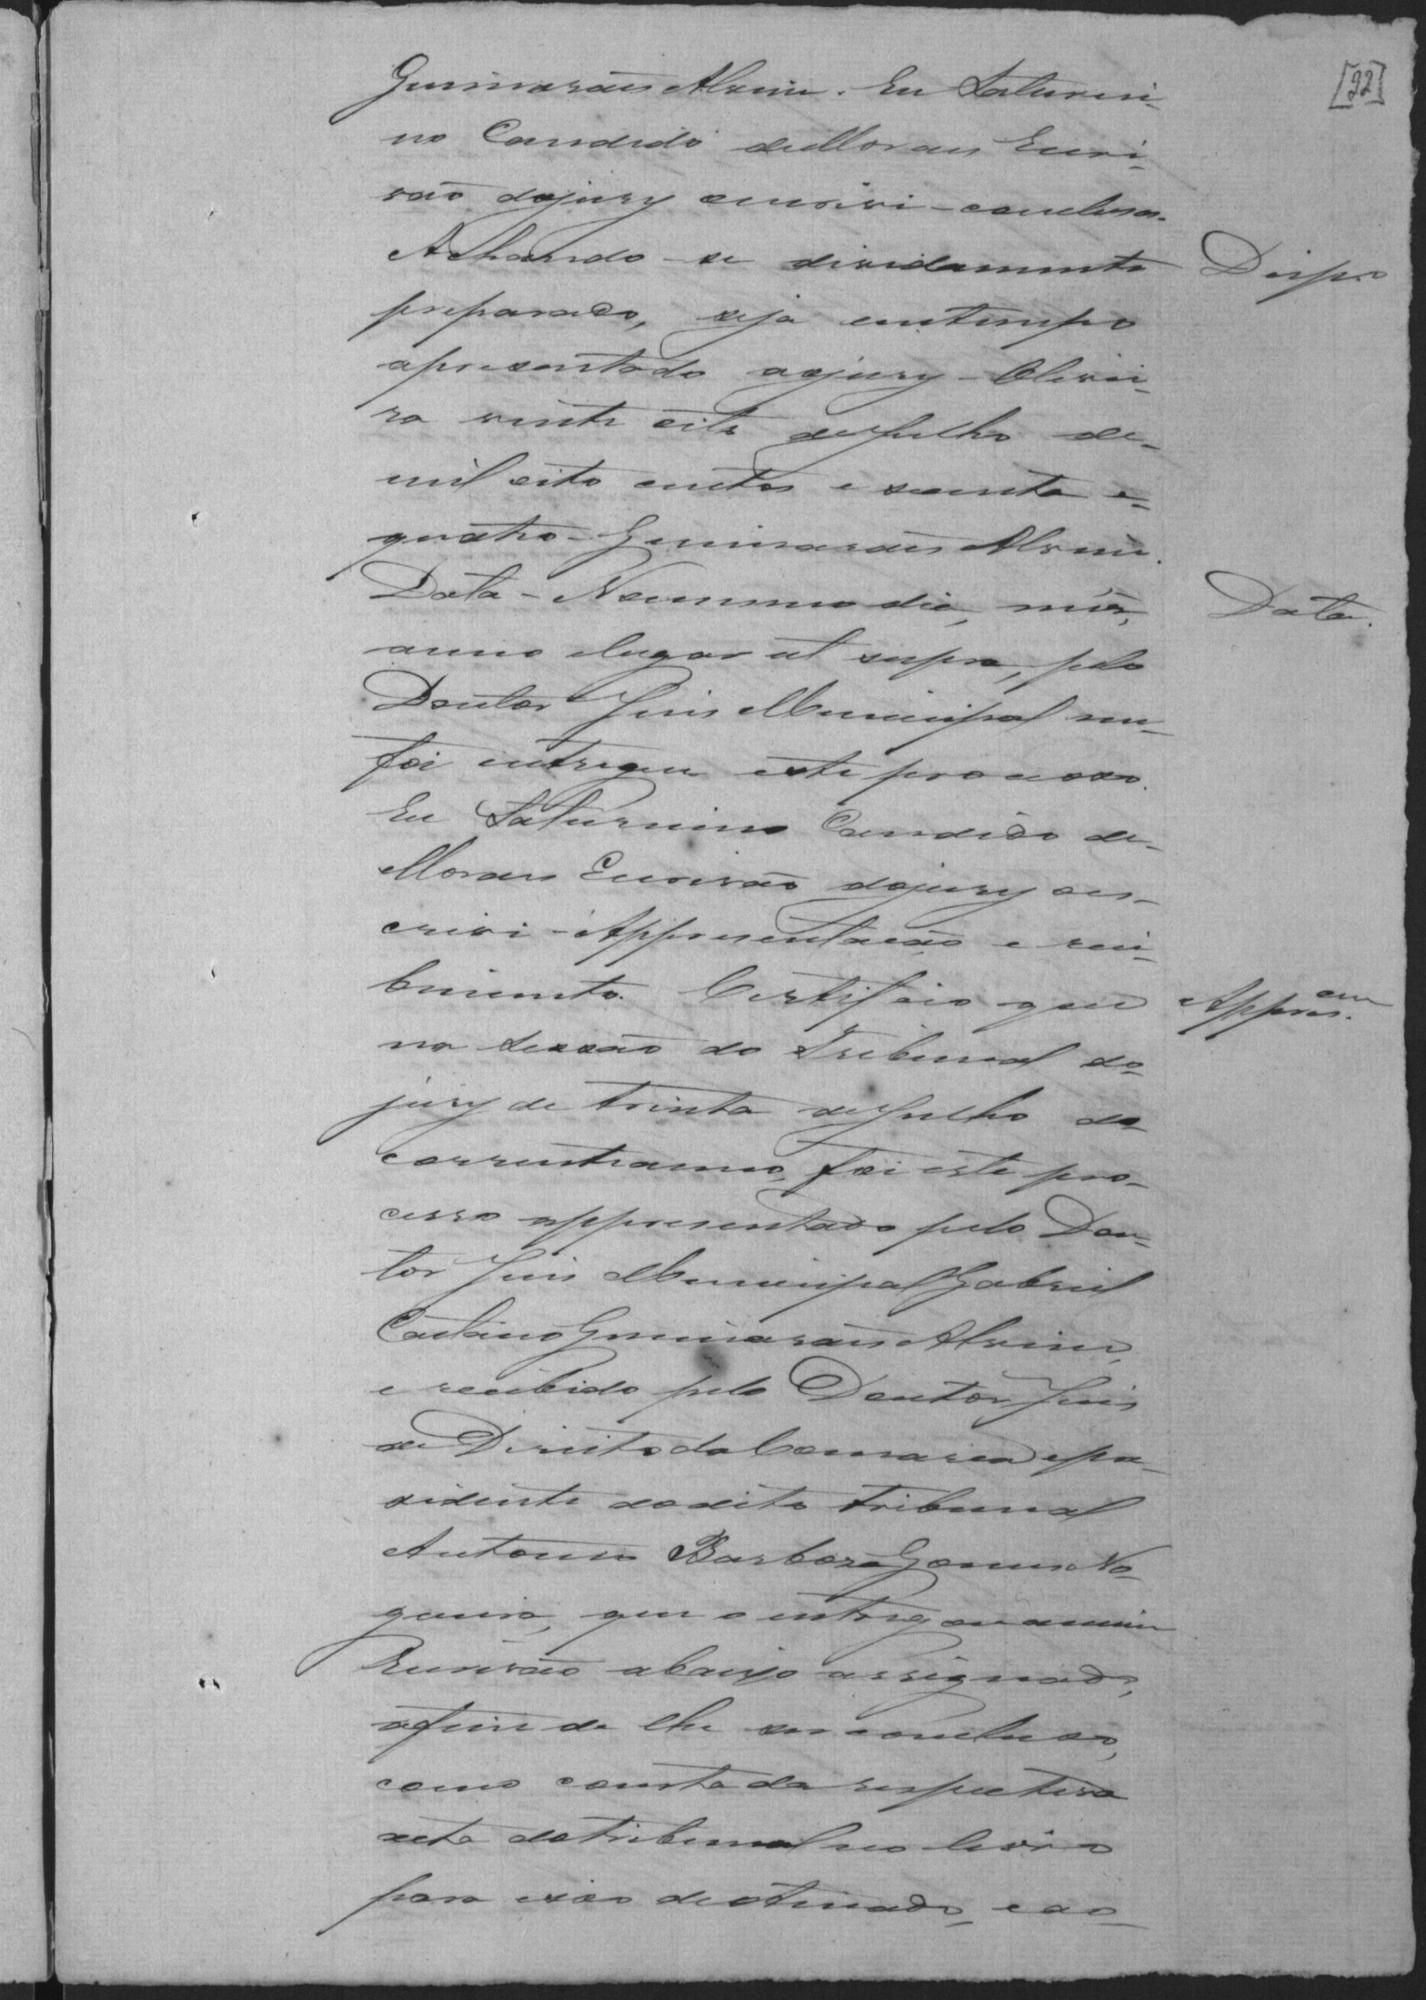 [92]
Guimarães Alvim. Eu Saturni-
no Candido de Moraes Escri-
vão do jury escrivi - conclusos.
Achando-se devidamente
Desp.o
preparado, seja em tempo
apresentado ao jury - Olivei-
ra vinte oito de Julho de
mil oito centos e secenta e
quatro - Guimarães Alvim.
Data - No mesmo dia, mês,
Data.
anno e lugar ut supra, pelo
Doutor Juis Municipal me
foi entregue este processo.
Eu Saturnino Candido de
Moraes Escrivão do jury es-
crivi - Appresentação e reci-
bimento. Certifico que
Appresen.
na sessão do Tribunal do
jury de trinta de Julho do
corrente anno, foi este pro-
cesso appresentado pelo Dou-
tor Juis Municipal Gabriel
Caetano Guimarães Alvim,
e recebido pelo Doutor Juis
de Direito da Comarca e pre-
sidente do dito tribunal
Antonio Barbosa Gomes No-
gueira, que o entregou a mim
Escrivão abaixo assignado,
afim de lhe ser concluso,
como consta da respectiva
acta do tribunal no livro
para isso destinado, e do-